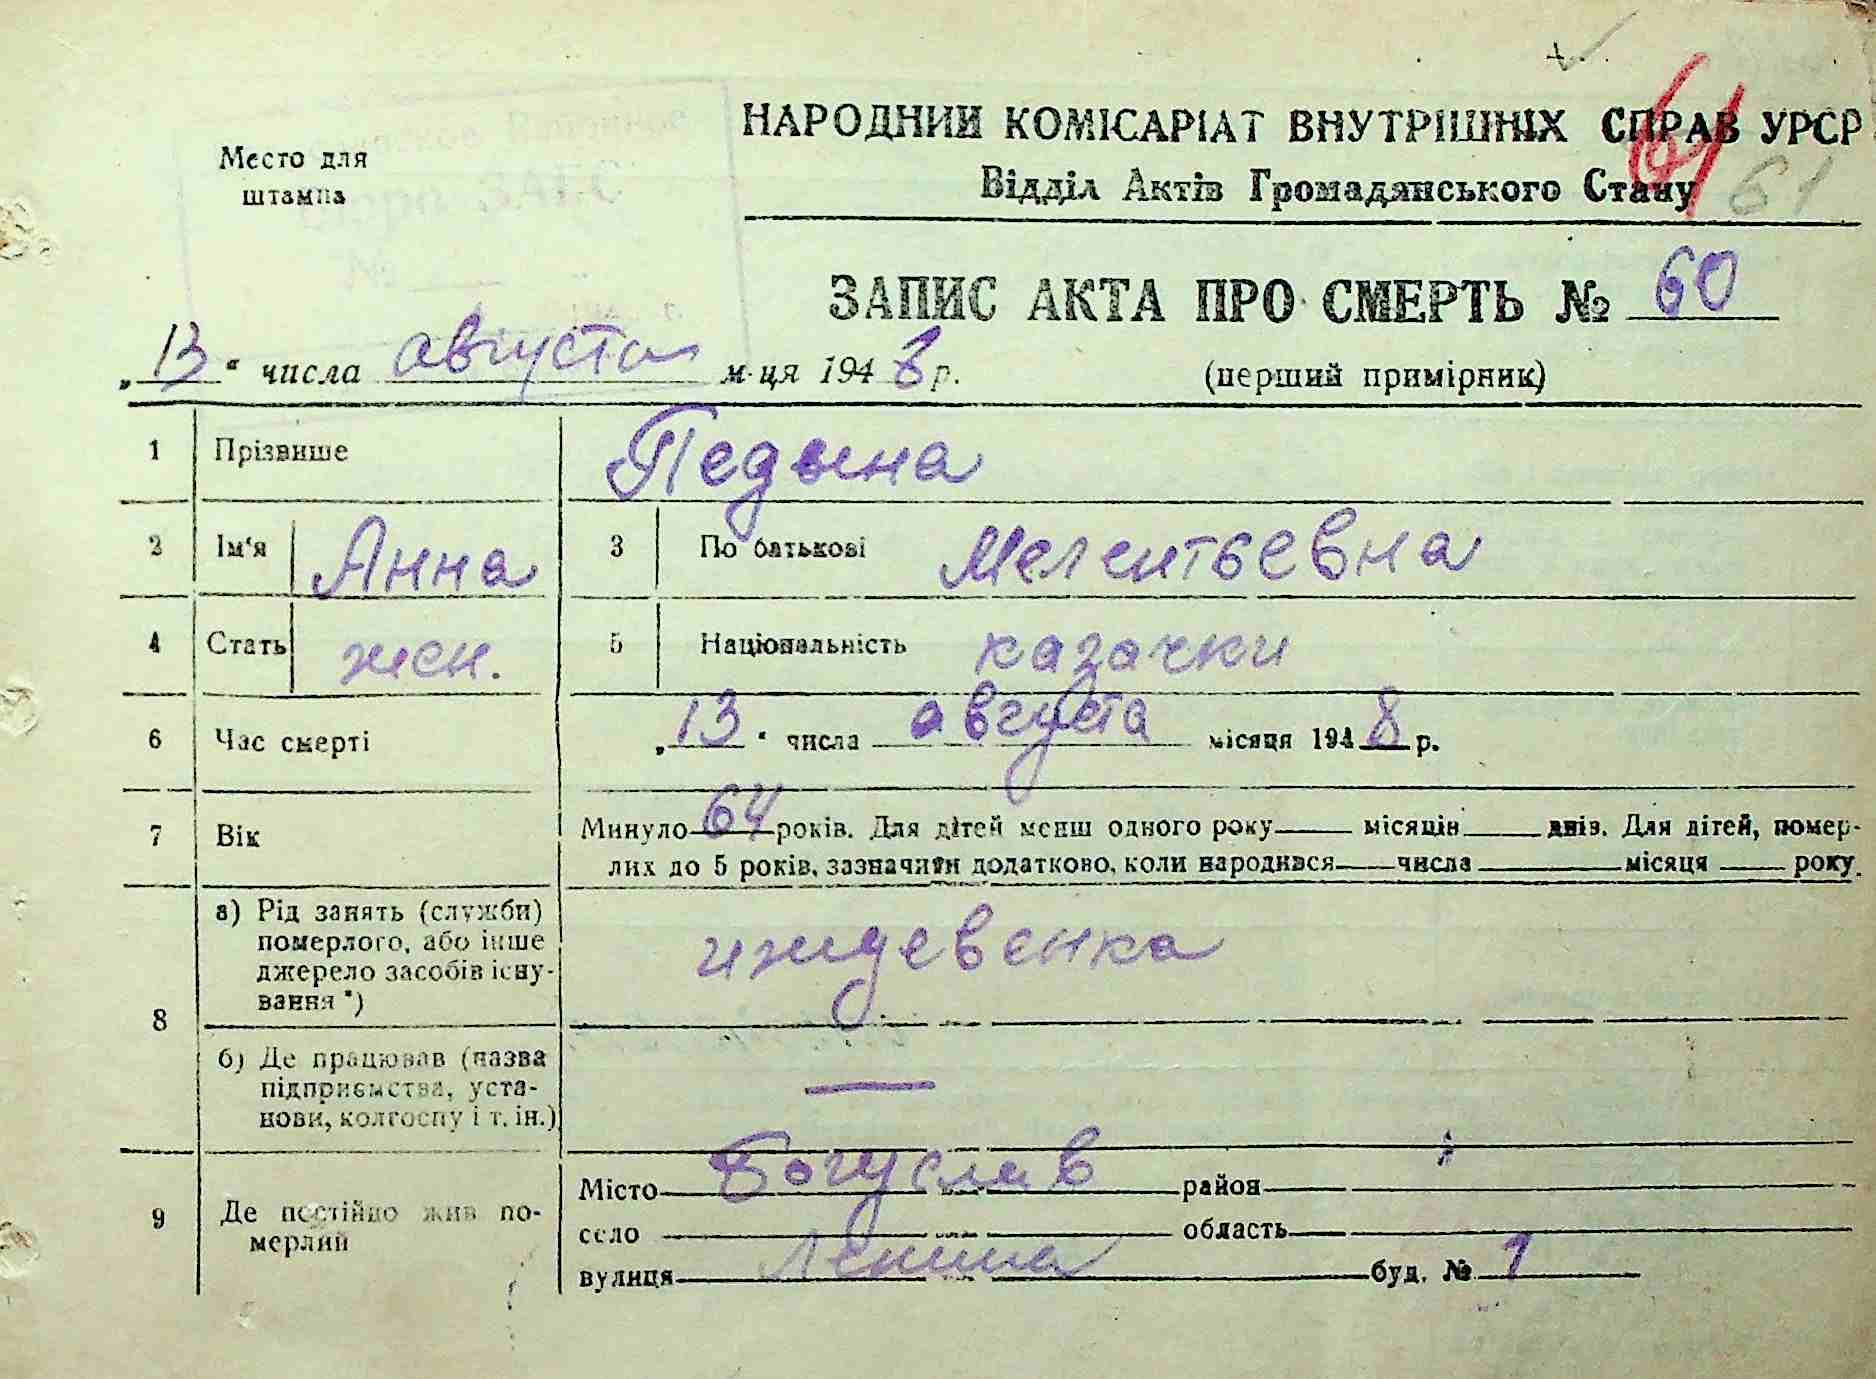 61
НАРОДНИЙ КОМІСАРІАТ ВНУТРІШНІХ СПРАВ УРСР
Відділ Актів Громадянського Стану 61
Место для
штампа
Районное
Бюро ЗАГС
№
ЗАПИС АКТА ПРО СМЕРТЬ № 60
„13“ числа августа м-ця 1948 р. (перший примірник)
1 Прізвише Педына
2 Ім'я Анна 3 По батькові Мелентьевна
4 Стать жен. 5 Національність казачки
6 Час смерті „13“ числа августа місяця 1948 р.
7 Вік Минуло 64 років. Для дітей менш одного року місяців днів. Для дітей, помер-
лих до 5 років, зазначити додатково, коли народився числа місяця року.
8 а) Рід занять (служби)
померлого, або інше
джерело засобів існу-
вання *) иждевенка
б) Де працював (назва
підприємства, уста-
нови, колгоспу і т. ін.) —
9 Де постійно жив по-
мерлий
Місто Богуслав район
село область
вулиця Ленина буд. № 1